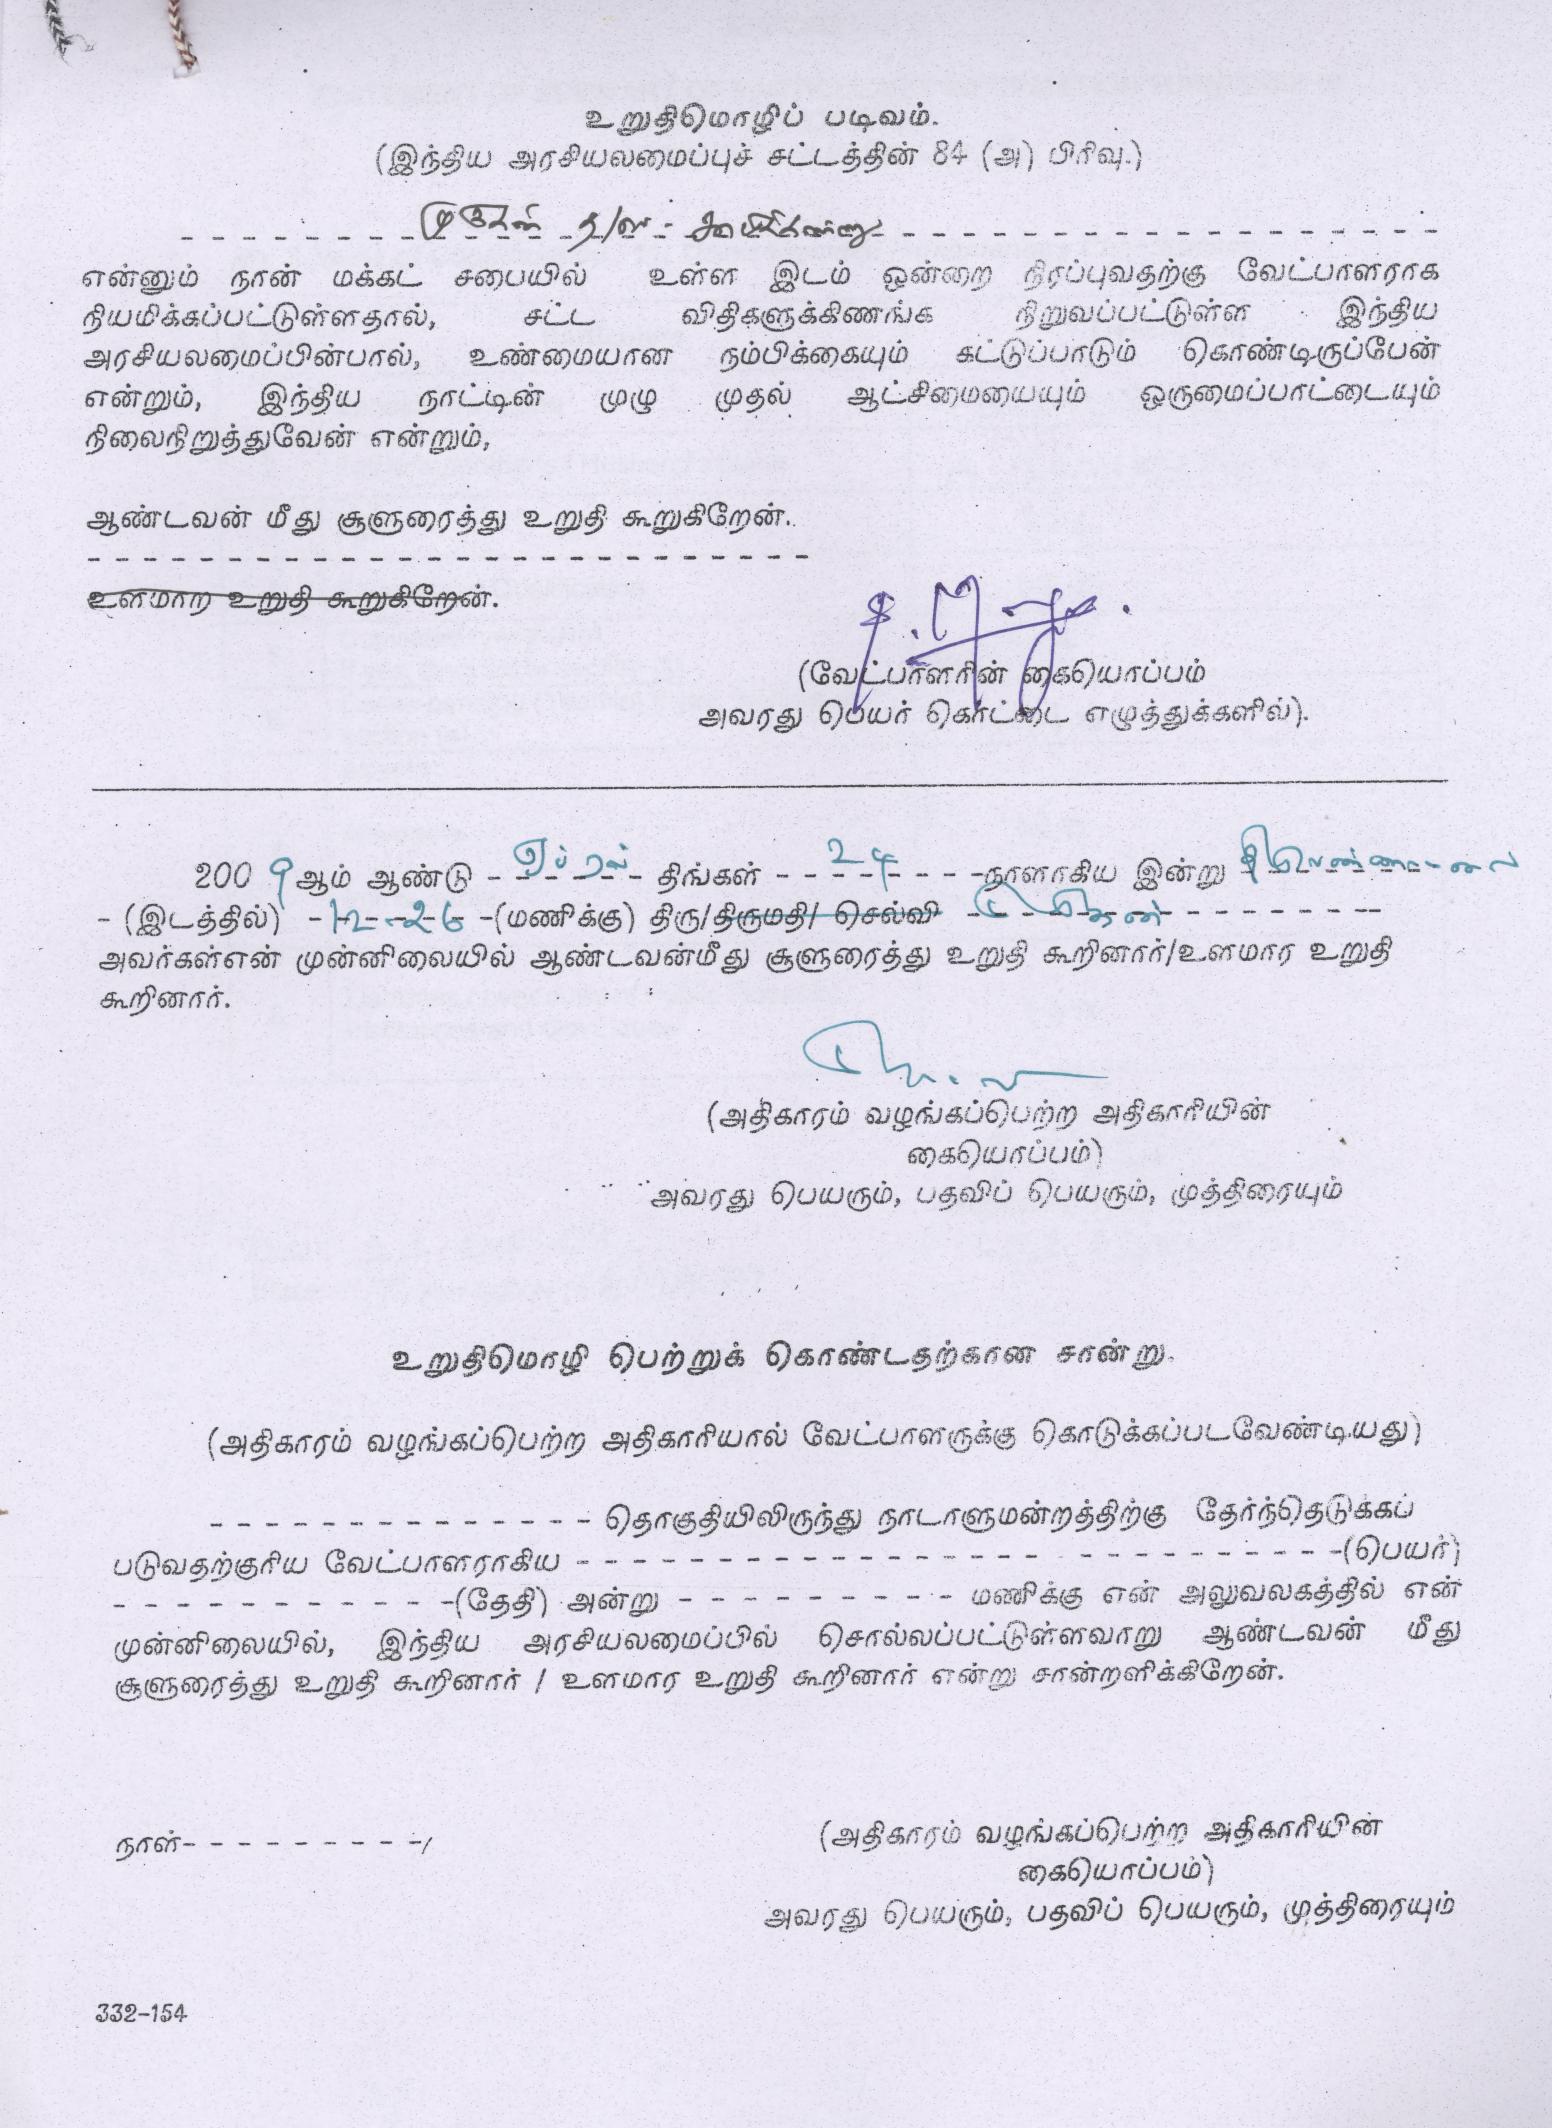 உறுதிமொழிப் படிவம்.
(இந்திய அரசியலமைப்புச் சட்டத்தின் 84 (அ) பிரிவு.)
த/பெ.
என்னும் நான் மக்கட் சபையில் உள்ள இடம் ஒன்றை நிரப்புவதற்கு வேட்பாளராக
நியமிக்கப்பட்டுள்ளதால், சட்ட விதிகளுக்கிணங்க நிறுவப்பட்டுள்ள இந்திய
அரசியலமைப்பின்பால், உண்மையான நம்பிக்கையும் கட்டுப்பாடும் கொண்டிருப்பேன்
என்றும், இந்திய நாட்டின் முழு முதல் ஆட்சிமையையும் ஒருமைப்பாட்டையும்
நிலைநிறுத்துவேன் என்றும்,
ஆண்டவன் மீது சூளுரைத்து உறுதி கூறுகிறேன்.
உளமாற உறுதி கூறுகிறேன்.
(வேட்பாளரின் கையொப்பம்
அவரது பெயர் கொட்டை எழுத்துக்களில்).
2009ஆம் ஆண்டு ஏப்ரல் திங்கள் 24 நாளாகிய இன்று
(இடத்தில்) 12-26 (மணிக்கு) திரு/திருமதி/ செல்வி
அவர்கள்என் முன்னிலையில் ஆண்டவன்மீது சூளுரைத்து உறுதி கூறினார்/உளமார உறுதி
கூறினார்.
(அதிகாரம் வழங்கப்பெற்ற அதிகாரியின்
கையொப்பம்)
அவரது பெயரும், பதவிப் பெயரும், முத்திரையும்
உறுதிமொழி பெற்றுக் கொண்டதற்கான சான்று.
(அதிகாரம் வழங்கப்பெற்ற அதிகாரியால் வேட்பாளருக்கு கொடுக்கப்படவேண்டியது)
--------------- தொகுதியிலிருந்து நாடாளுமன்றத்திற்கு தேர்ந்தெடுக்கப்
படுவதற்குரிய வேட்பாளராகிய ----------------------------(பெயர்)
-------------(தேதி) அன்று ---------- மணிக்கு என் அலுவலகத்தில் என்
முன்னிலையில், இந்திய அரசியலமைப்பில் சொல்லப்பட்டுள்ளவாறு ஆண்டவன் மீது
சூளுரைத்து உறுதி கூறினார் / உளமார உறுதி கூறினார் என்று சான்றளிக்கிறேன்.
நாள்---------
(அதிகாரம் வழங்கப்பெற்ற அதிகாரியின்
கையொப்பம்)
அவரது பெயரும், பதவிப் பெயரும், முத்திரையும்
332-154